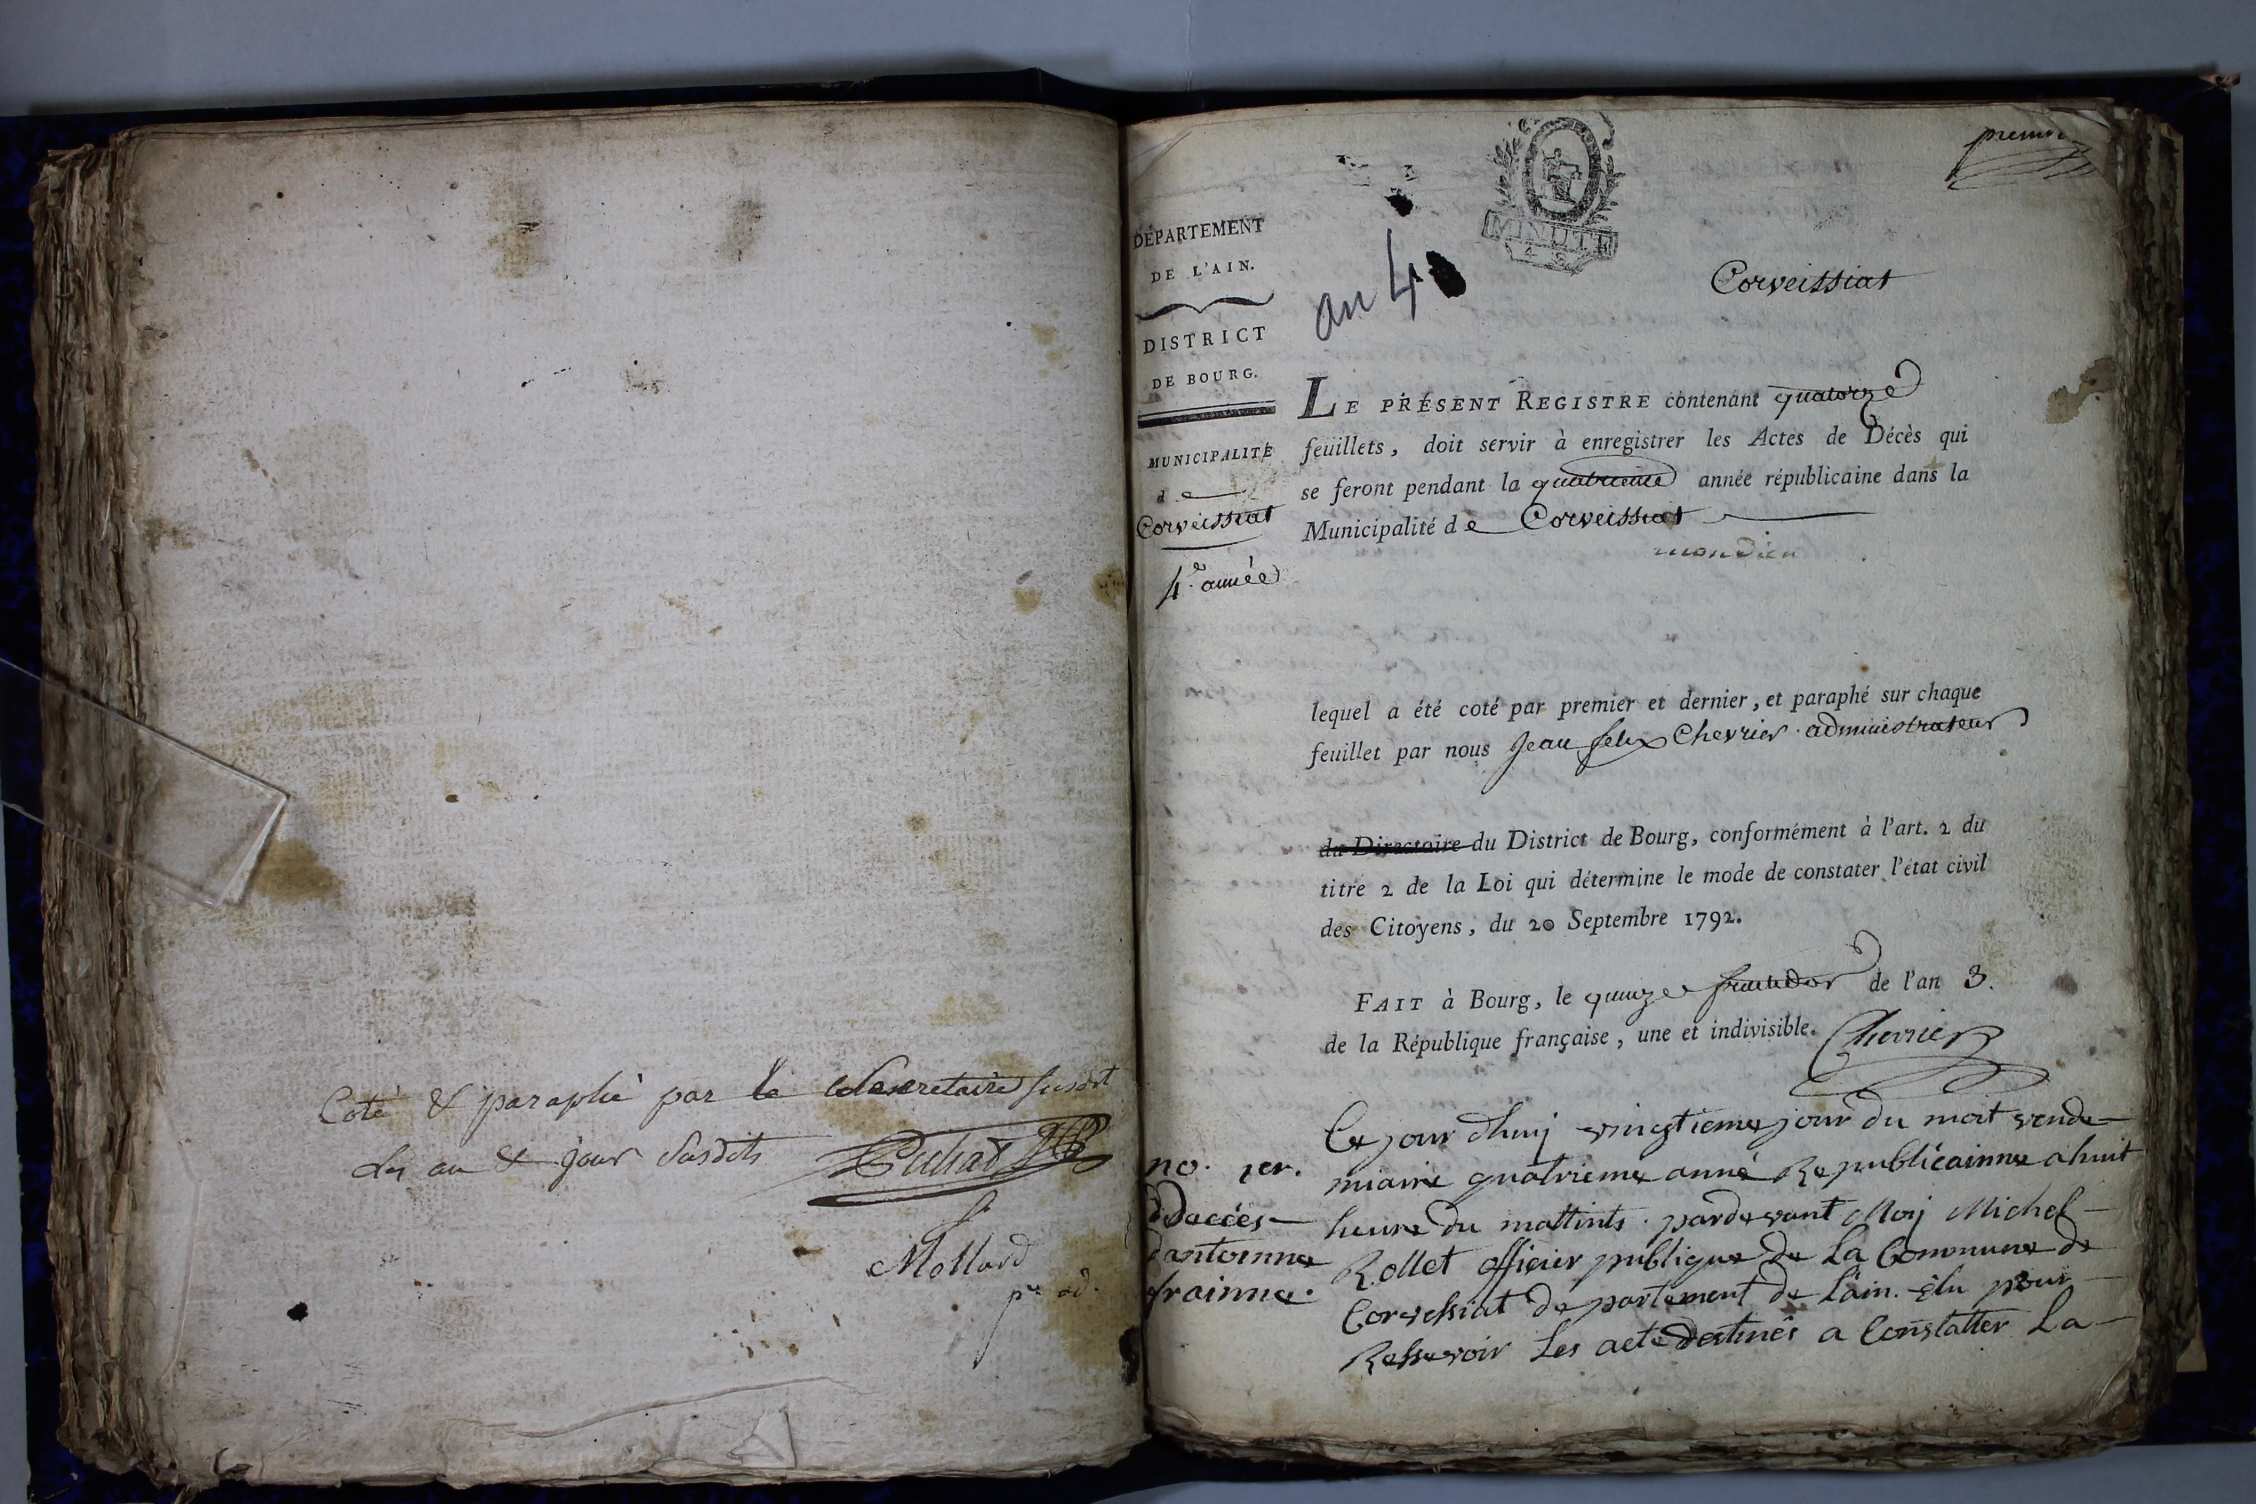 Coté & paraphé par le Secretaire susdit
les an & jour susdits Puhat
Mollard
pt. ad.
premier
MINUTE
an 4
Corveissiat
DÉPARTEMENT
DE L'AIN.
DISTRICT
DE BOURG.
MUNICIPALITÉ
de
Corveissiat
4e. année
LE PRÉSENT REGISTRE contenant quatorze
feuillets, doit servir à enregistrer les Actes de Décès qui
se feront pendant la quatrieme année républicaine dans la
Municipalité de Corveissiat
mon dieu
lequel a été coté par premier et dernier, et paraphé sur chaque
feuillet par nous Jean felix Chevrier administrateur
du Directoire du District de Bourg, conformément à l'art. 2 du
titre 2 de la Loi qui détermine le mode de constater l'état civil
des Citoyens, du 20 Septembre 1792.
FAIT à Bourg, le quinze fructidor de l'an 3.
de la République française, une et indivisible. Chevrier
no. 1er.
Ddecées
dantoinne
frainne.
Ce jour dhuij vingtieme jour du moit vende
miaire quatrieme anné Republicainne a huit
heure du mattints. pardevant Moij Michel
Rollet officier publique de La Commune de
Corvessiat departement de Lain. Elu pour
Ressevoir Les acte destinés a Constatter La